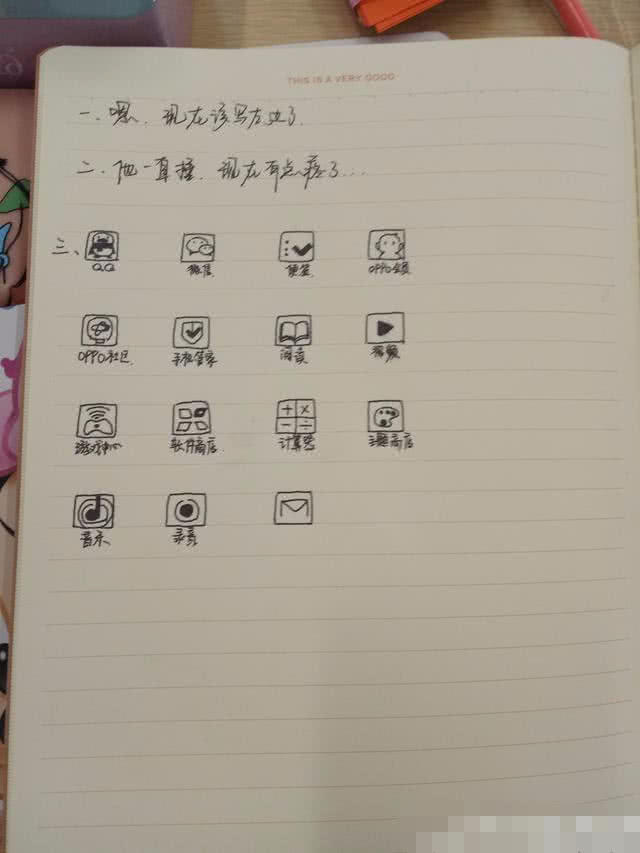 THIS IS A VERY GOOD
一、嗯、现在该写左边了.
二、他一直撞、现在有点疼了...
三、
QQ 微信 便签 OPPO会员
OPPO社区 手机管家 阅读 视频
游戏中心 软件商店 计算器 主题商店
音乐 录音